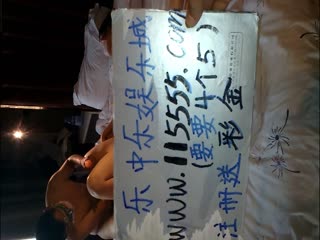 乐中乐娱乐城
www.115555.com
(要要4个5)
注册送彩金